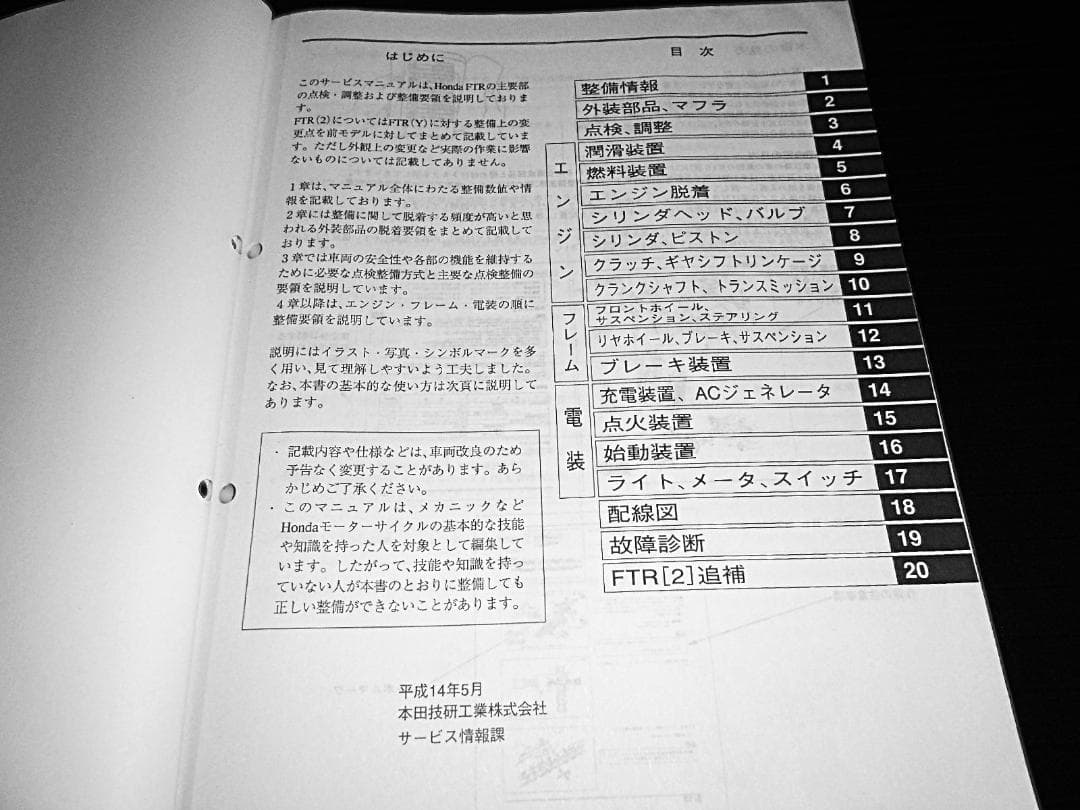 はじめに
このサービスマニュアルは、Honda FTRの主要部
の点検・調整および整備要領を説明しておりま
す。
FTR(2)についてはFTR(Y)に対する整備上の変
更点を前モデルに対してまとめて記載していま
す。ただし外観上の変更など実際の作業に影響
ないものについては記載してありません。
1章は、マニュアル全体にわたる整備数値や情
報を記載しております。
2章には整備に関して脱着する頻度が高いと思
われる外装部品の脱着要領をまとめて記載して
おります。
3章では車両の安全性や各部の機能を維持する
ために必要な点検整備方式と主要な点検整備の
要領を説明しています。
4章以降は、エンジン・フレーム・電装の順に
整備要領を説明しています。
説明にはイラスト・写真・シンボルマークを多
く用い、見て理解しやすいよう工夫しました。
なお、本書の基本的な使い方は次頁に説明して
あります。
・記載内容や仕様などは、車両改良のため
予告なく変更することがあります。あら
かじめご了承ください。
・このマニュアルは、メカニックなど
Hondaモーターサイクルの基本的な技能
や知識を持った人を対象として編集して
います。したがって、技能や知識を持っ
ていない人が本書のとおりに整備しても
正しい整備ができないことがあります。
平成14年5月
本田技研工業株式会社
サービス情報課
目次
整備情報 1
外装部品、マフラ 2
点検、調整 3
エンジン
潤滑装置 4
燃料装置 5
エンジン脱着 6
シリンダヘッド、バルブ 7
シリンダ、ピストン 8
クラッチ、ギヤシフトリンケージ 9
クランクシャフト、トランスミッション 10
フレーム
フロントホイール、
サスペンション、ステアリング 11
リヤホイール、ブレーキ、サスペンション 12
ブレーキ装置 13
電装
充電装置、ACジェネレータ 14
点火装置 15
始動装置 16
ライト、メータ、スイッチ 17
配線図 18
故障診断 19
FTR[2]追補 20